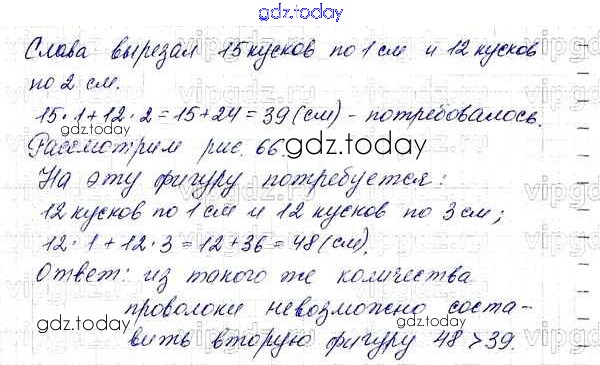 gdz.today
Слава вырезал 15 кусков по 1 см и 12 кусков
по 2 см.
15·1+12·2=15+24=39(см) - потребовалось.
gdz.today
Рассмотрим рис. 66.
gdz.today
На эту фигуру потребуется:
12 кусков по 1 см и 12 кусков по 3 см;
12·1+12·3=12+36=48(см).
Ответ: из такого же количества
проволоки невозможно соста-
gdz.today
gdz.today
вить вторую фигуру 48>39.